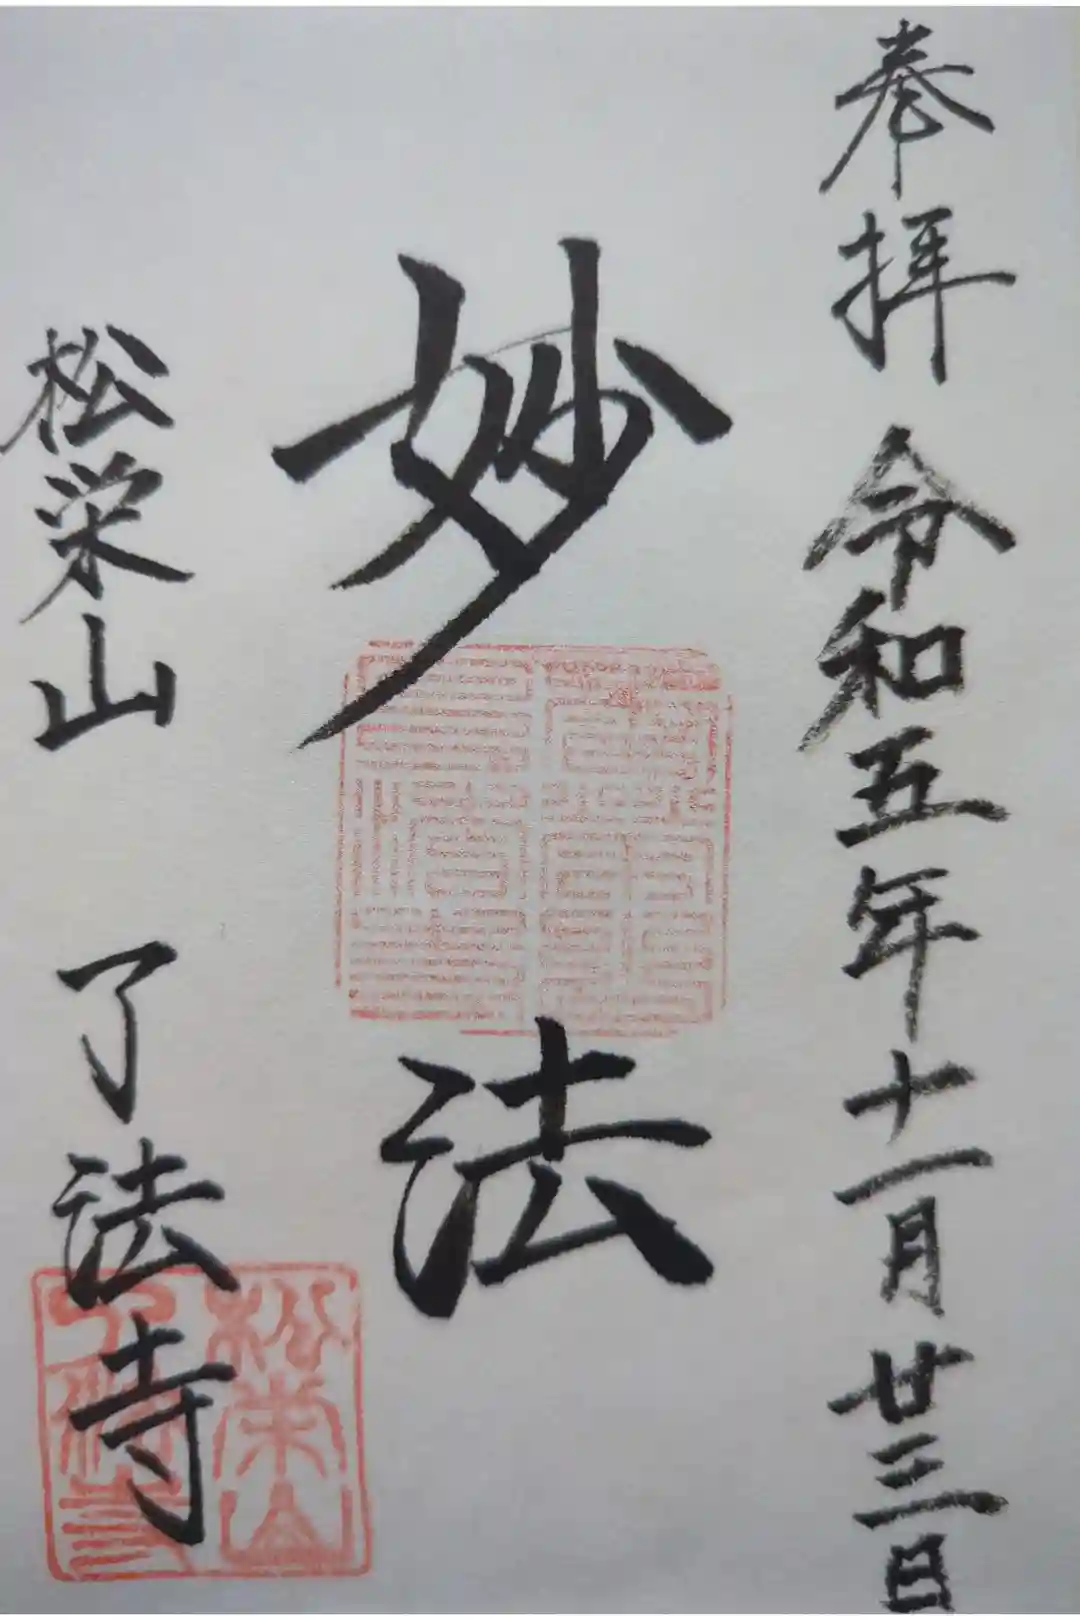 奉拝 令和五年十一月廿三日
妙法
松栄山 了法寺
松栄山